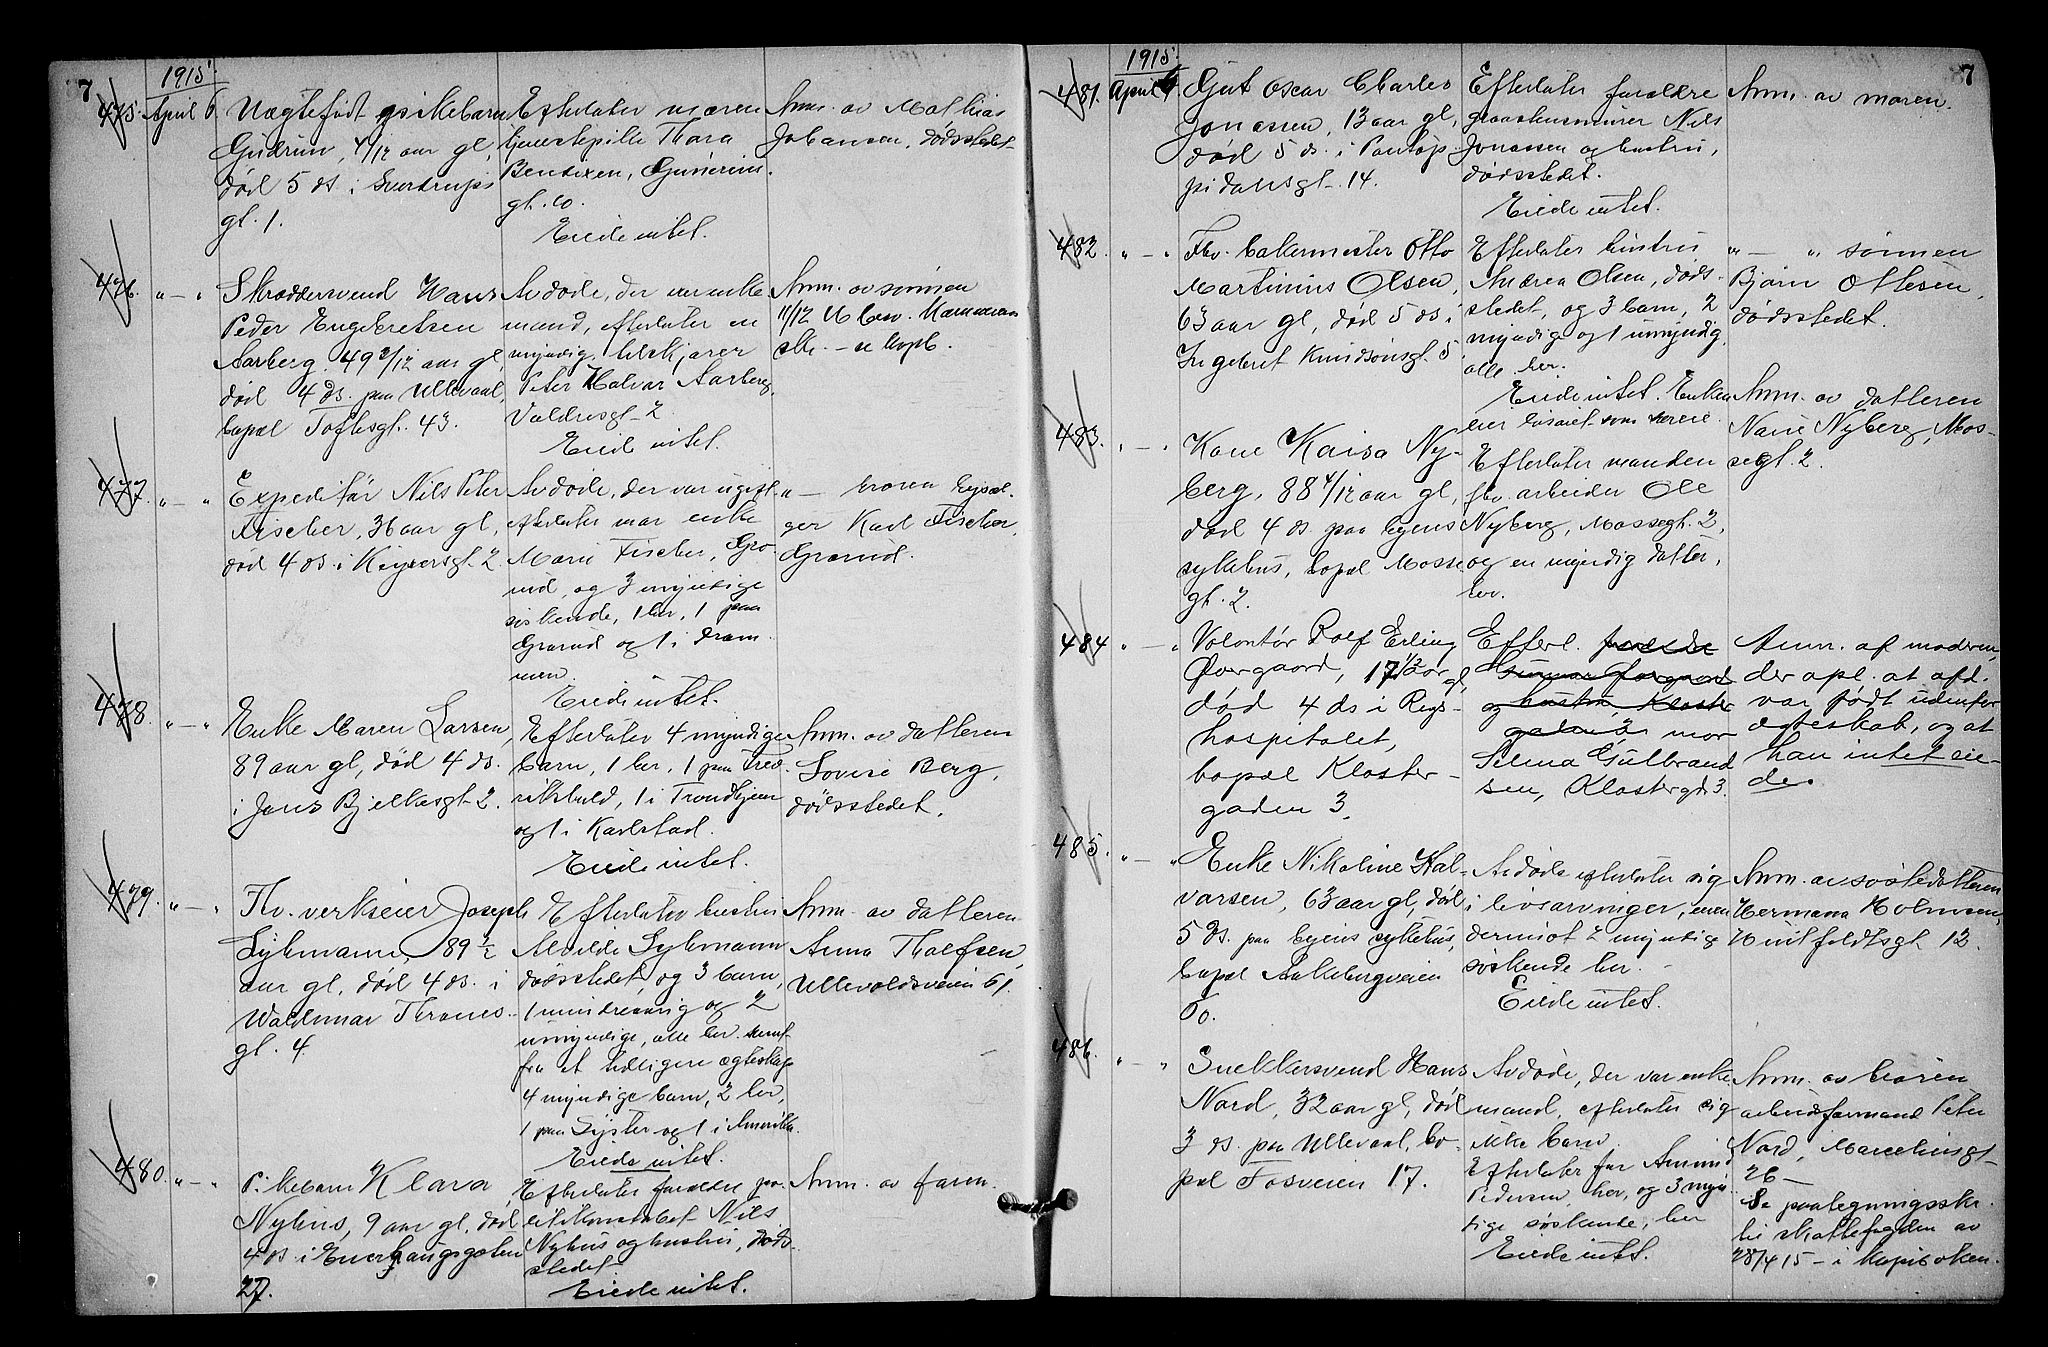 7
1915
475. April 6. Uægtefødt pikebarn
Gudrun, 4/12 aar gl,
død 5 ds. i Sverdrups
gt. 1.
Efterlater moren
tjenestepike Thora
Bendixen,
gt. 10.
Eiede intet.
Anm. av Mathias
Johansen, dødsstedet
476. " — " Skræddersvend Hans
Peder Engebretsen
Aarberg, 49 2/12 aar gl,
død 4 ds. paa Ullevaal,
bopæl Toftesgt. 43.
Avdøde, der var enke-
mand, efterlater en
myndig
Peter Halvar Aarberg,
Valdresgt. 2
Eiede intet.
Anm. av sønnen
11/12
se kopb.
477. " — " Expeditør Nils Peter
Fischer, 36 aar gl,
død 4 ds. i Keysersgt. 2
Avdøde, der var ugift,
efterlater mor enke
Marie Fischer, Gro-
rud, og 3 myndige
søskende, 1 her, 1 paa
Grorud og 1 i Dram-
men.
Eiede intet.
" — broren bysæl-
ger Karl Fischer,
Grorud.
478. " — " Enke Maren Larsen,
89 aar gl, død 4 ds.
i Jens Bjelkesgt. 2.
Efterlater 4 myndige
barn, 1 her, 1 paa Fred-
rikshald, 1 i Trondhjem
og 1 i Karlstad.
Eiede intet.
Anm. av datteren
Lovise Berg,
dødsstedet.
479. " — " Fhv. verkseier Joseph
Sykmann, 89 1/2
aar gl, død 4 ds. i
Waldemar Thranes-
gt. 4.
Efterlater hustru
Alvilde Sykmann
dødsstedet, og 3 barn,
1 mindreaarig og 2
umyndige, alle her. samt
fra et tidligere ægteskap
4 myndige barn, 2 her,
1 paa og 1 i Amerika.
Eiede intet.
Anm. av datteren
Anna Tholfsen,
Ullevoldsveien 61.
480. " — " Pikebarn Klara
Nyhus, 9 aar gl, død
4 ds. i Enerhaugsgaten
27.
Efterlater forældre po-
litikonstabel Nils
Nyhus og hustru, døds-
stedet.
Eiede intet.
Anm. av faren.
7
1915
481. April 6. Gut Oscar Charles
Jonassen, 13 aar gl,
død 5 ds. i Pontop-
pidansgt. 14.
Efterlater forældre
Nils
Jonassen og hustru,
dødsstedet.
Eiede intet.
Anm. av moren.
482. " — " Fhv. bakermester Otto
Martinius Olsen,
63 aar gl, død 5 ds i
Ingebret Knudsønsgt. 5
Efterlater hustru
Andrea Olsen, døds-
stedet, og 3 barn, 2
myndig og 1 umyndig,
alle her.
Eiede intet. Enken
eier
" — " sønnen
Bjørn Ottesen,
dødsstedet.
483. " — " Kone Kaisa Ny-
berg, 88 4/12 aar gl,
død 4 ds. paa byens
sykehus, bopæl Mosse
gt. 2.
Efterlater manden
fhv. arbeider Ole
Nyberg, Mossegt. 2,
og en myndig datter,
her.
Anm. av datteren
Nyberg, Mos-
segt. 2.
484 " — " Volontør Rolf Erling
Øvergaard, 17 1/2 aar gl,
død 4 ds i Rigs-
hospitalet,
bopæl Kloster-
gaden 3.
Efterl. forældre
Gunnar Øvergaard
og hustru, Kloster
gaden 3 mor
Selma Gulbrand
sen, Klostergd. 3.
Anm. af moderen,
der opl. at afd.
var født udenfor
ægteskab, og at
han intet eie-
de.
485. " — " Enke Nikoline Hal-
varsen, 63 aar gl, død
5 ds. paa byens sykehus,
bopæl Aakebergveien
60.
Avdøde efterlater sig
i livsarvinger, men
derimot 2 myndige
søskende her.
Eiede intet.
Anm. av søsterdatteren
Hermana Holmsen,
Huitfeldtsgt. 12.
486. " — " Snekkersvend Hans
Nord, 32 aar gl, død
3 ds. paa Ullevaal, bo-
pæl Fosveien 17.
Avdøde, der var enke
mand, efterlater sig
ikke barn.
Efterlater far
Pedersen, her, og 3 myn-
dige søskende, her
Eiede intet.
Anm. av broren
arbeidsformand Peter
Nord, Marcelinsgt-
26 —
Se paalegningsskr.
til skattefogden av
28/4 15 — i kopiboken.